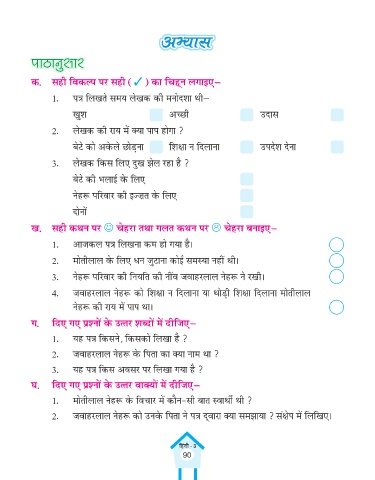 अभ्यास
पाठानुसार
क. सही विकल्प पर सही ( ✓ ) का चिह्न लगाइए–
1. पत्र लिखते समय लेखक की मनोदशा थी–
खुश अच्छी उदास
2. लेखक की राय में क्या पाप होगा ?
बेटे को अकेले छोड़ना शिक्षा न दिलाना उपदेश देना
3. लेखक किस लिए दुख झेल रहा है ?
बेटे की भलाई के लिए
नेहरू परिवार की इज़्ज़त के लिए
दोनों
ख. सही कथन पर ☺ चेहरा तथा गलत कथन पर ☹ चेहरा बनाइए–
1. आजकल पत्र लिखना कम हो गया है।
2. मोतीलाल के लिए धन जुटाना कोई समस्या नहीं थी।
3. नेहरू परिवार की नियति की नींव जवाहरलाल नेहरू ने रखी।
4. जवाहरलाल नेहरू को शिक्षा न दिलाना या थोड़ी शिक्षा दिलाना मोतीलाल
नेहरू की राय में पाप था।
ग. दिए गए प्रश्नों के उत्तर शब्दों में दीजिए–
1. यह पत्र किसने, किसको लिखा है ?
2. जवाहरलाल नेहरू के पिता का क्या नाम था ?
3. यह पत्र किस अवसर पर लिखा गया है ?
घ. दिए गए प्रश्नों के उत्तर वाक्यों में दीजिए–
1. मोतीलाल नेहरू के विचार में कौन-सी बात स्वार्थी थी ?
2. जवाहरलाल नेहरू को उनके पिता ने पत्र द्वारा क्या समझाया ? संक्षेप में लिखिए।
हिंदी - 3
90